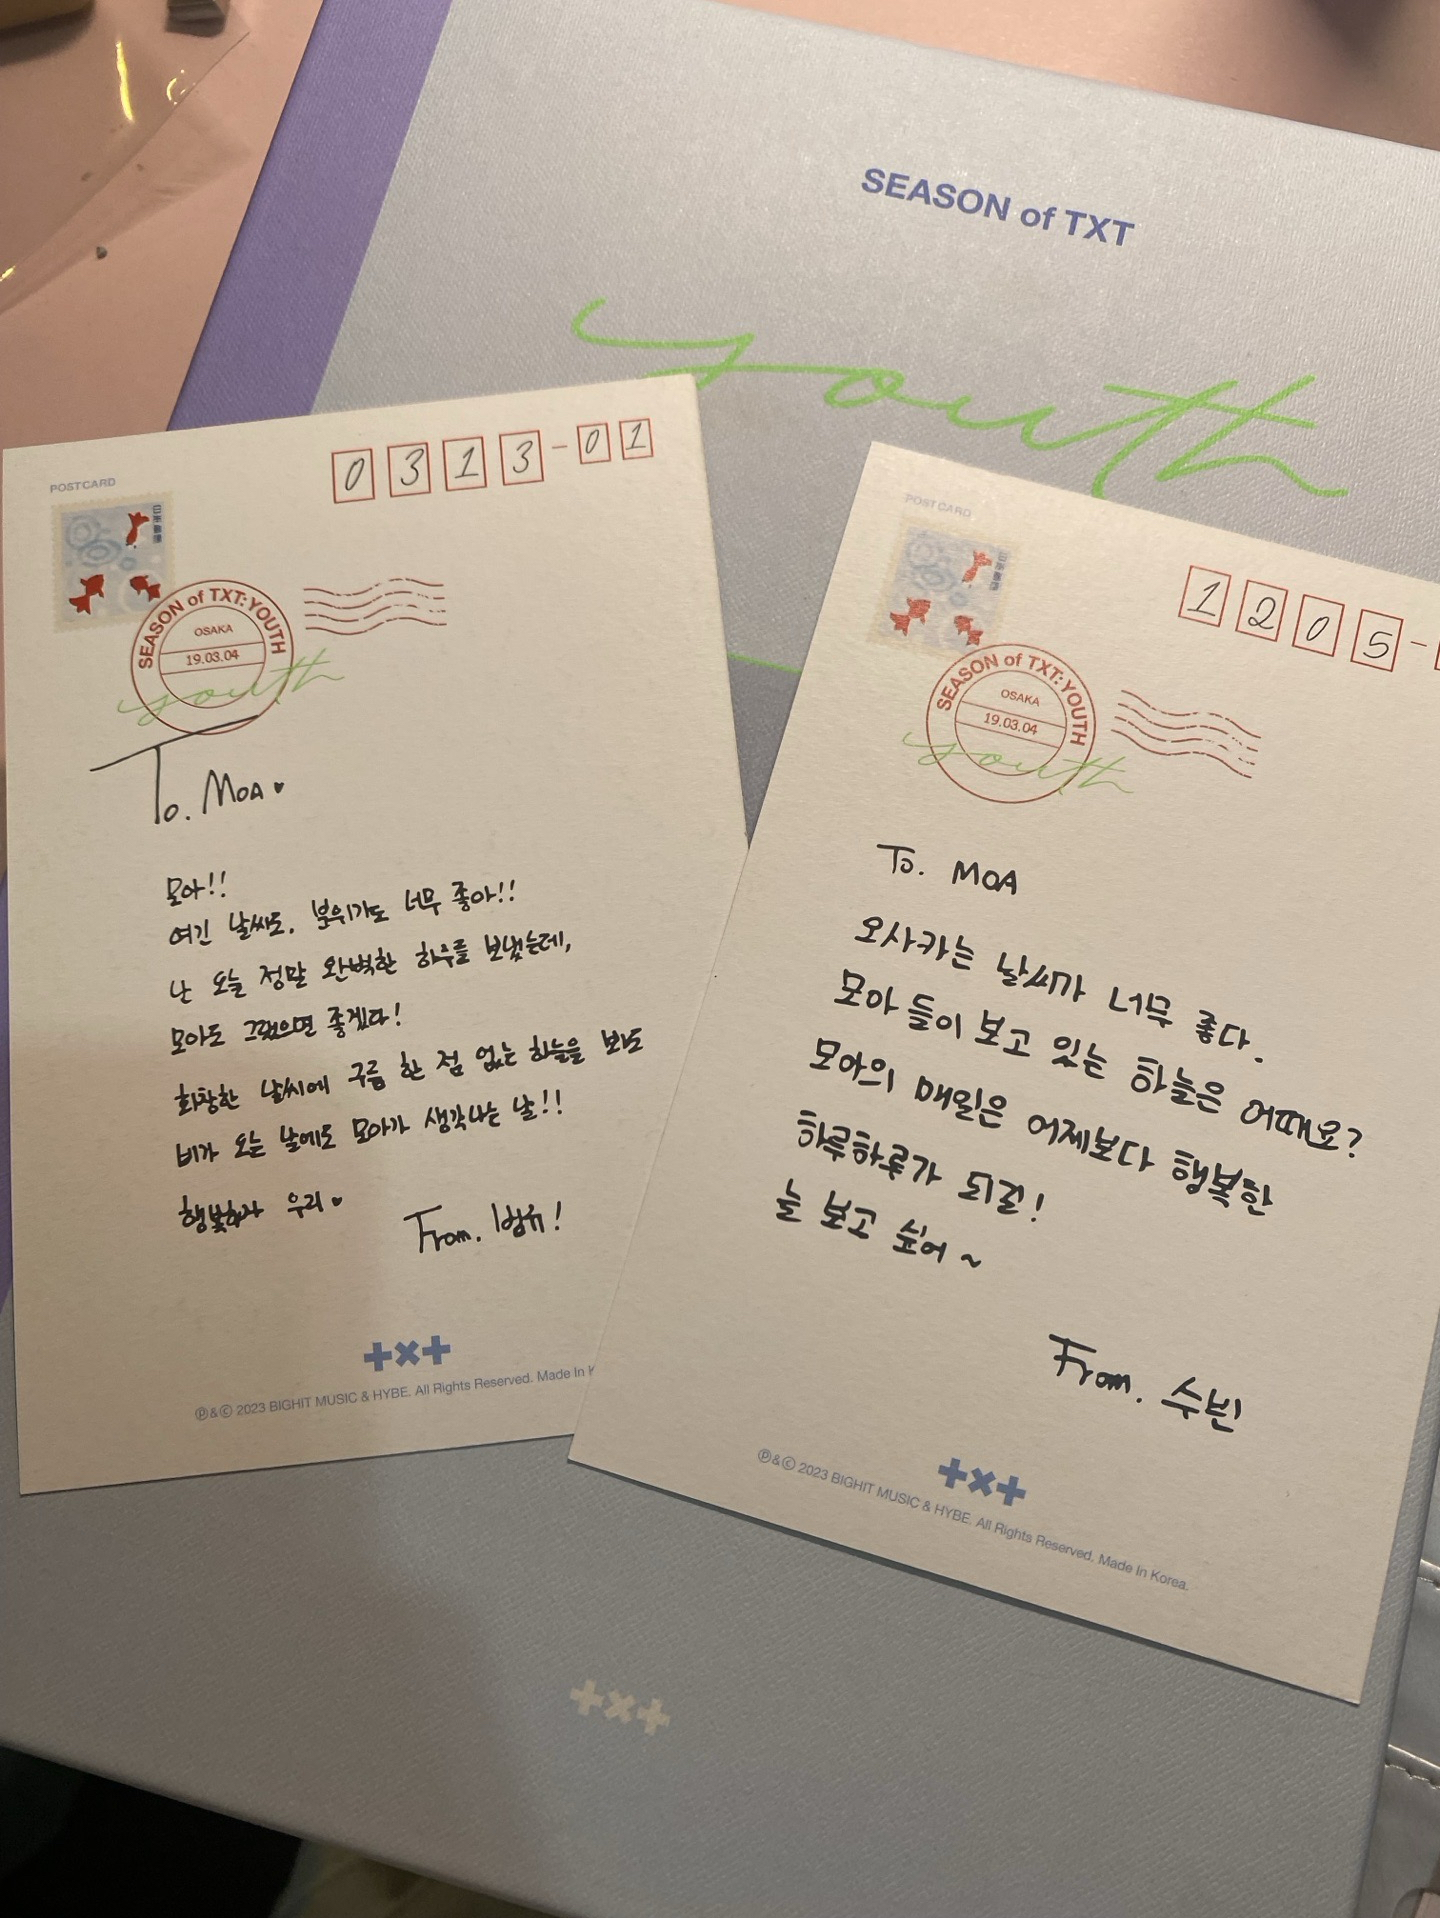 SEASON of TXT
youth
POSTCARD
0313-01
日本郵便
SEASON of TXT:YOUTH
OSAKA
19.03.04
youth
To. MOA♥
모아!!
여긴 날씨도, 분위기도 너무 좋아!!
난 오늘 정말 완벽한 하루를 보냈는데,
모아도 그랬으면 좋겠다!
화창한 날씨에 구름 한 점 없는 하늘을 봐도
비가 오는 날에도 모아가 생각나는 날!!
행복하자 우리♥
From. 범규!
+×+
℗&© 2023 BIGHIT MUSIC & HYBE. All Rights Reserved. Made In K
POSTCARD
1205-
日本郵便
SEASON of TXT:YOUTH
OSAKA
19.03.04
youth
To. MOA
오사카는 날씨가 너무 좋다.
모아들이 보고 있는 하늘은 어때요?
모아의 매일은 어제보다 행복한
하루하루가 되길!
늘 보고 싶어~
From. 수빈
+×+
℗&© 2023 BIGHIT MUSIC & HYBE. All Rights Reserved. Made In Korea.
+×+